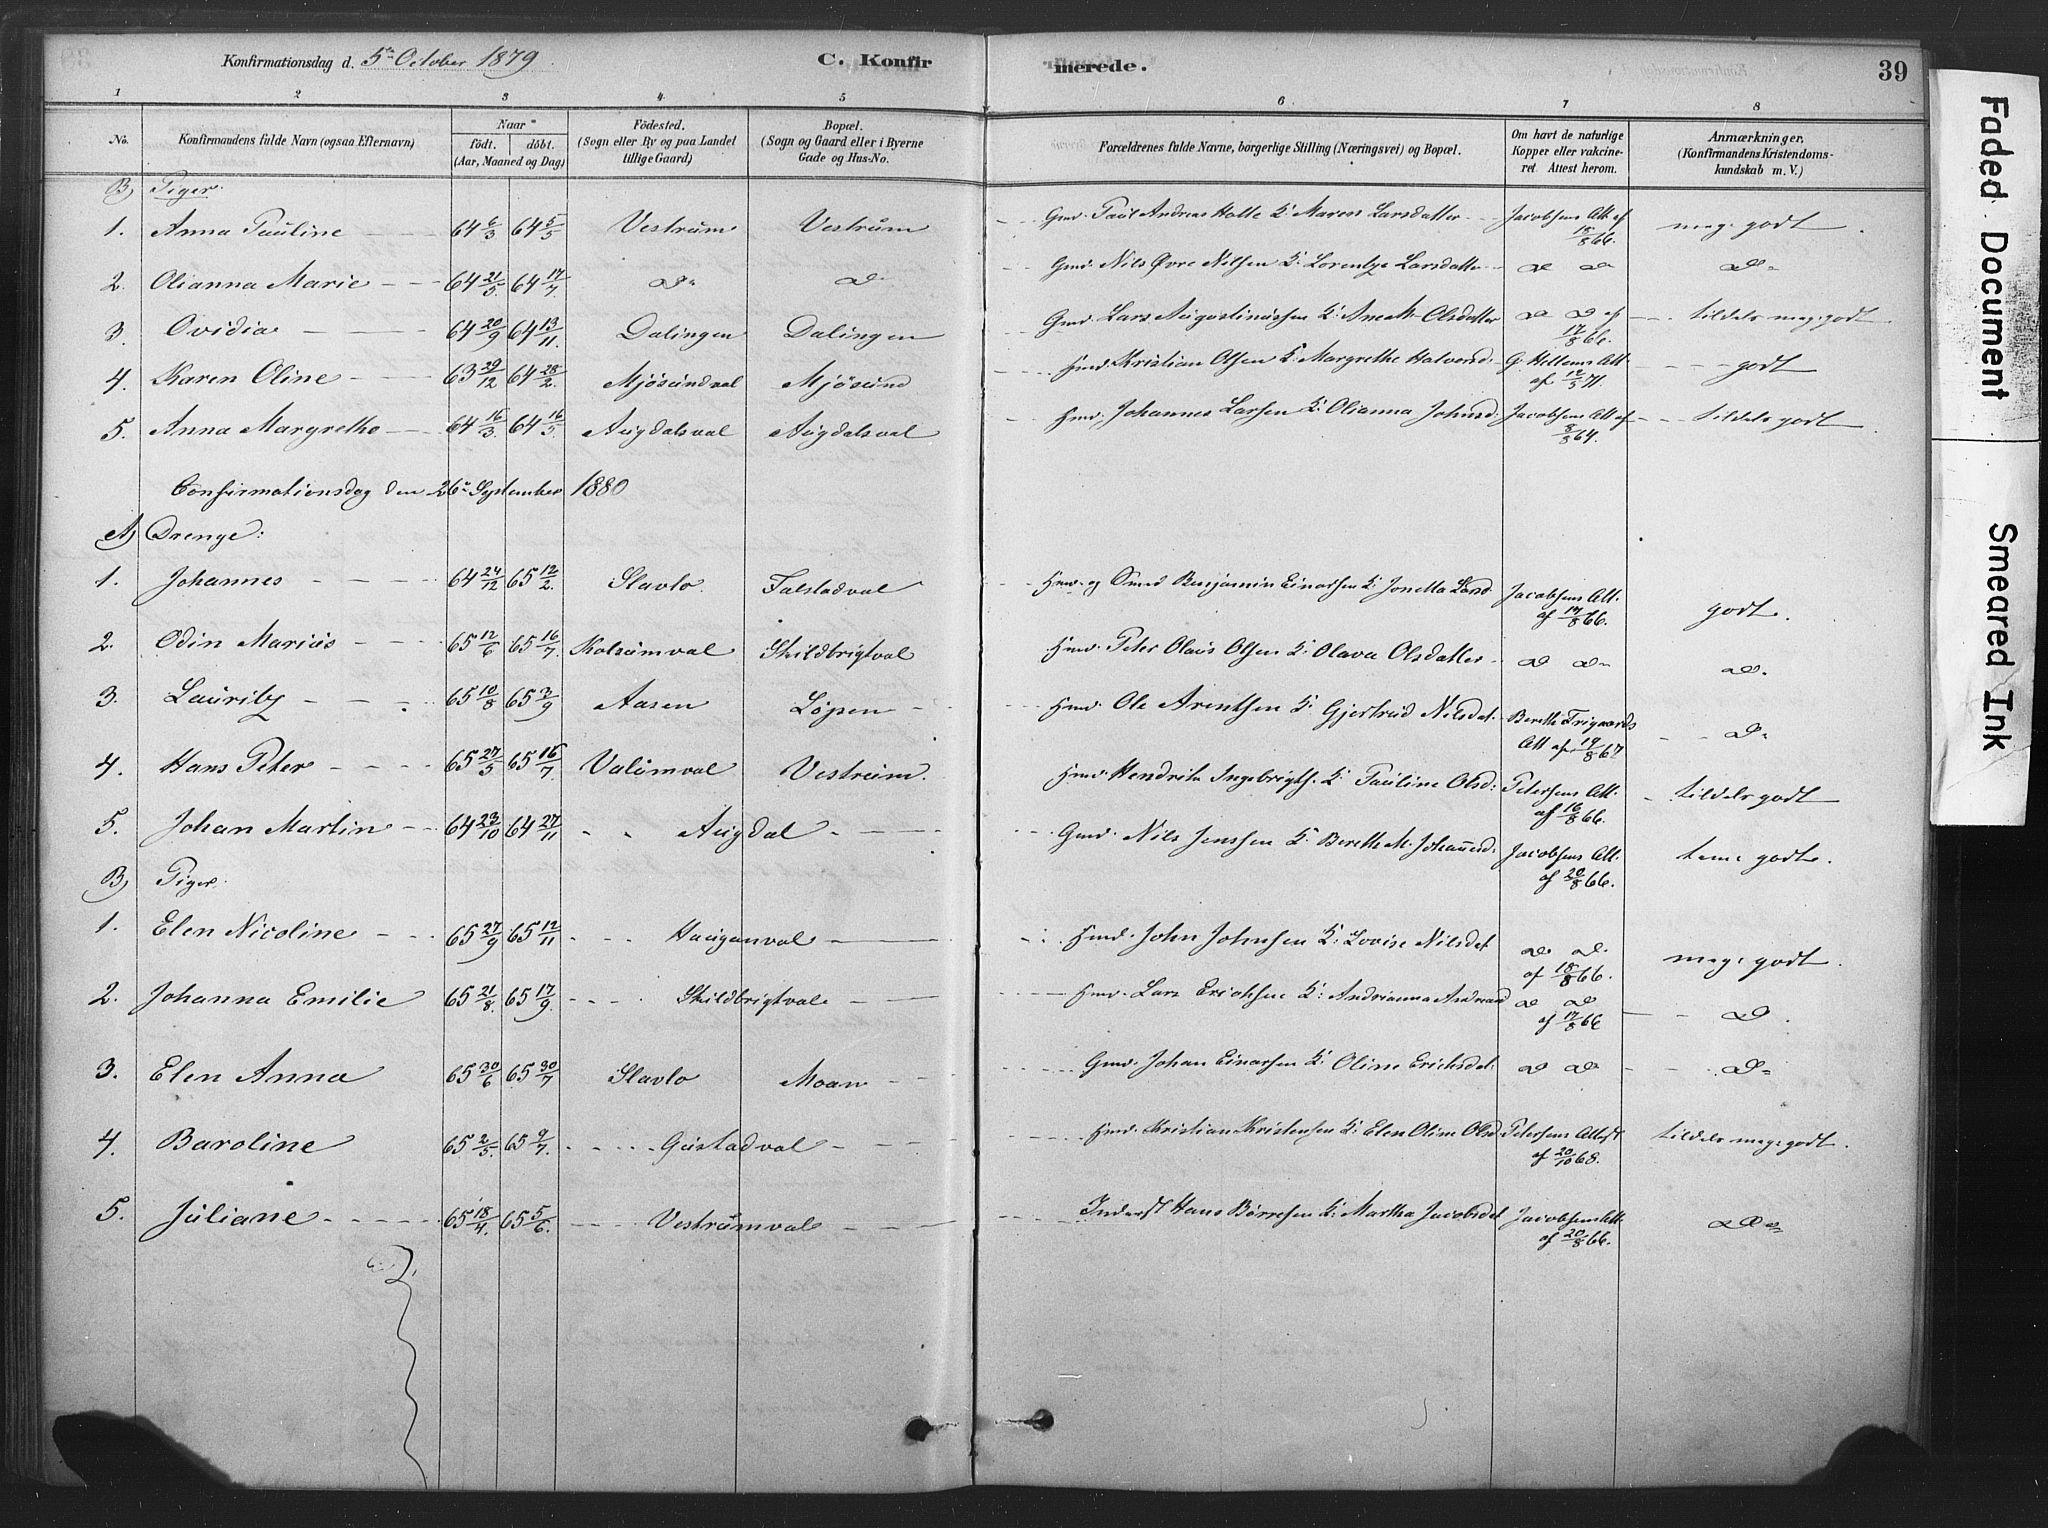 Konfirmationsdag d. 5te October 1879. C. Konfirmerede. 39
1 2 3 4 5 6 7 8
No. Konfirmandens fulde Navn (ogsaa Efternavn) Naar født. døbt. (Aar, Maaned og Dag) Födested. (Sogn eller By og paa Landet tillige Gaard) Bopæl. (Sogn og Gaard eller i Byerne Gade og Hus-No. Forældrenes fulde Navne, borgerlige Stilling (Næringsvei) og Bopæl. Om havt de naturlige Kopper eller vakcineret. Attest herom. Anmærkninger, (Konfirmandens Kristendomskundskab m. V.)
B) Piger.
1. Anna Pauline 64 6/3 64 5/5 Vestrum Vestrum Gmd. Paul Andreas Holte K. Maren Larsdatter Jacobsens Att. af 18/8 66. meg. godt.
2. Olianna Marie 64 21/5 64 17/7 do do Gmd. Nils Øvre Nilsen K. Lorentze Larsdatter do do do
3. Ovidia 64 20/9 64 13/11. Dalingen Dalingen Gmd. Lars Augustinussen K. Ane M. Olsdatter do do af 17/8 66. tildels meg. godt.
4. Karen Oline 63 29/12 64 28/2. Mjösundval Mjösund Hmd. Kristian Olsen K. Margrethe Halvorsd. G. Hellems Att. af 12/5 71. godt
5. Anna Margrethe 64 16/3 64 16/5 Augdalsval Augdalsval Hmd. Johannes Larsen K. Olianna Johnsd. Jacobsens Att. af 8/8 64. tildels godt
Confirmationsdag den 26de September 1880
A) Drenge:
1. Johannes 64 24/12 65 12/2. Slavlo Falstadval Hmd. og Smed Benjamin Einarsen K. Jonetta Larsd Jacobsens Att. af 17/8 66. godt.
2. Odin Marius 65 12/6 65 16/7. Kolsumval Skildbrigtval Hmd. Peter Olaus Olsen K. Olava Olsdatter do do do.
3. Lauritz 65 10/8 65 3/9 Aasen Løpsen Hmd. Ole Arentsen K. Gjertrud Nilsdat. Berethe Trigaards Att af 19/8 67 do
4. Hans Peter 65 27/5 65 16/7 Valumval Vestrum. Hmd. Hendrik Ingebrigts. K. Pauline Olsd. Petersens Att. af 16/8 66. tildels godt
5. Johan Martin 64 23/10 64 27/11 Augdal Gmd. Nils Jenssen K. Berethe M. Johannesd. Jacobsens Att. af 20/8 66. teml. godt.
B) Piger.
1. Elen Nicoline 65 27/9 65 12/11 Hauganval Hmd. John Johnsen K. Lovise Nilsdat do do. af 18/8 66. meg. godt.
2. Johanna Emilie 65 21/8. 65 17/9. Skildbrigtval Hmd. Lars Ericksen K. Andrianna Andreasd do do af 17/8 66 do.
3. Elen Anna 65 30/6 65 30/7 Slavlo Moan Gmd. Johan Einarsen K. Oline Ericksdat. do do do
4. Baroline 65 2/5. 65 9/7. Gustadval Hmd. Kristian Kristensen K. Elen Oline Olsd. Petersens Attest af 20/10 68. tildels meg. godt.
5. Juliane 65 18/4. 65 5/6. Vestrumval Inderst Hans Börresen K. Martha Jacobsdat Jacobsens Att. af 20/8 66. do
Faded Document
Smeared Ink